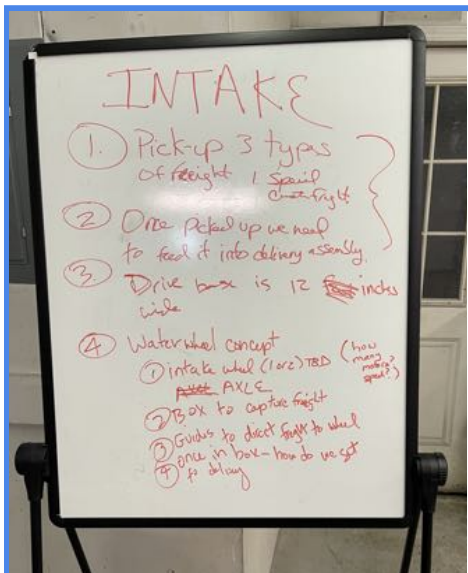 INTAKE
1. Pick-up 3 types
of freight 1 Special
freight
2 Once picked up we need
to feed it into delivery assembly.
3. Drive base is 12 inches
wide
4 Waterwheel concept
1 intake wheel (1 or 2) TBD (how many motors, speed?)
AXLE
2 Box to capture freight
3 Guides to direct freight to wheel
4 once in box - how do we get
to delivery